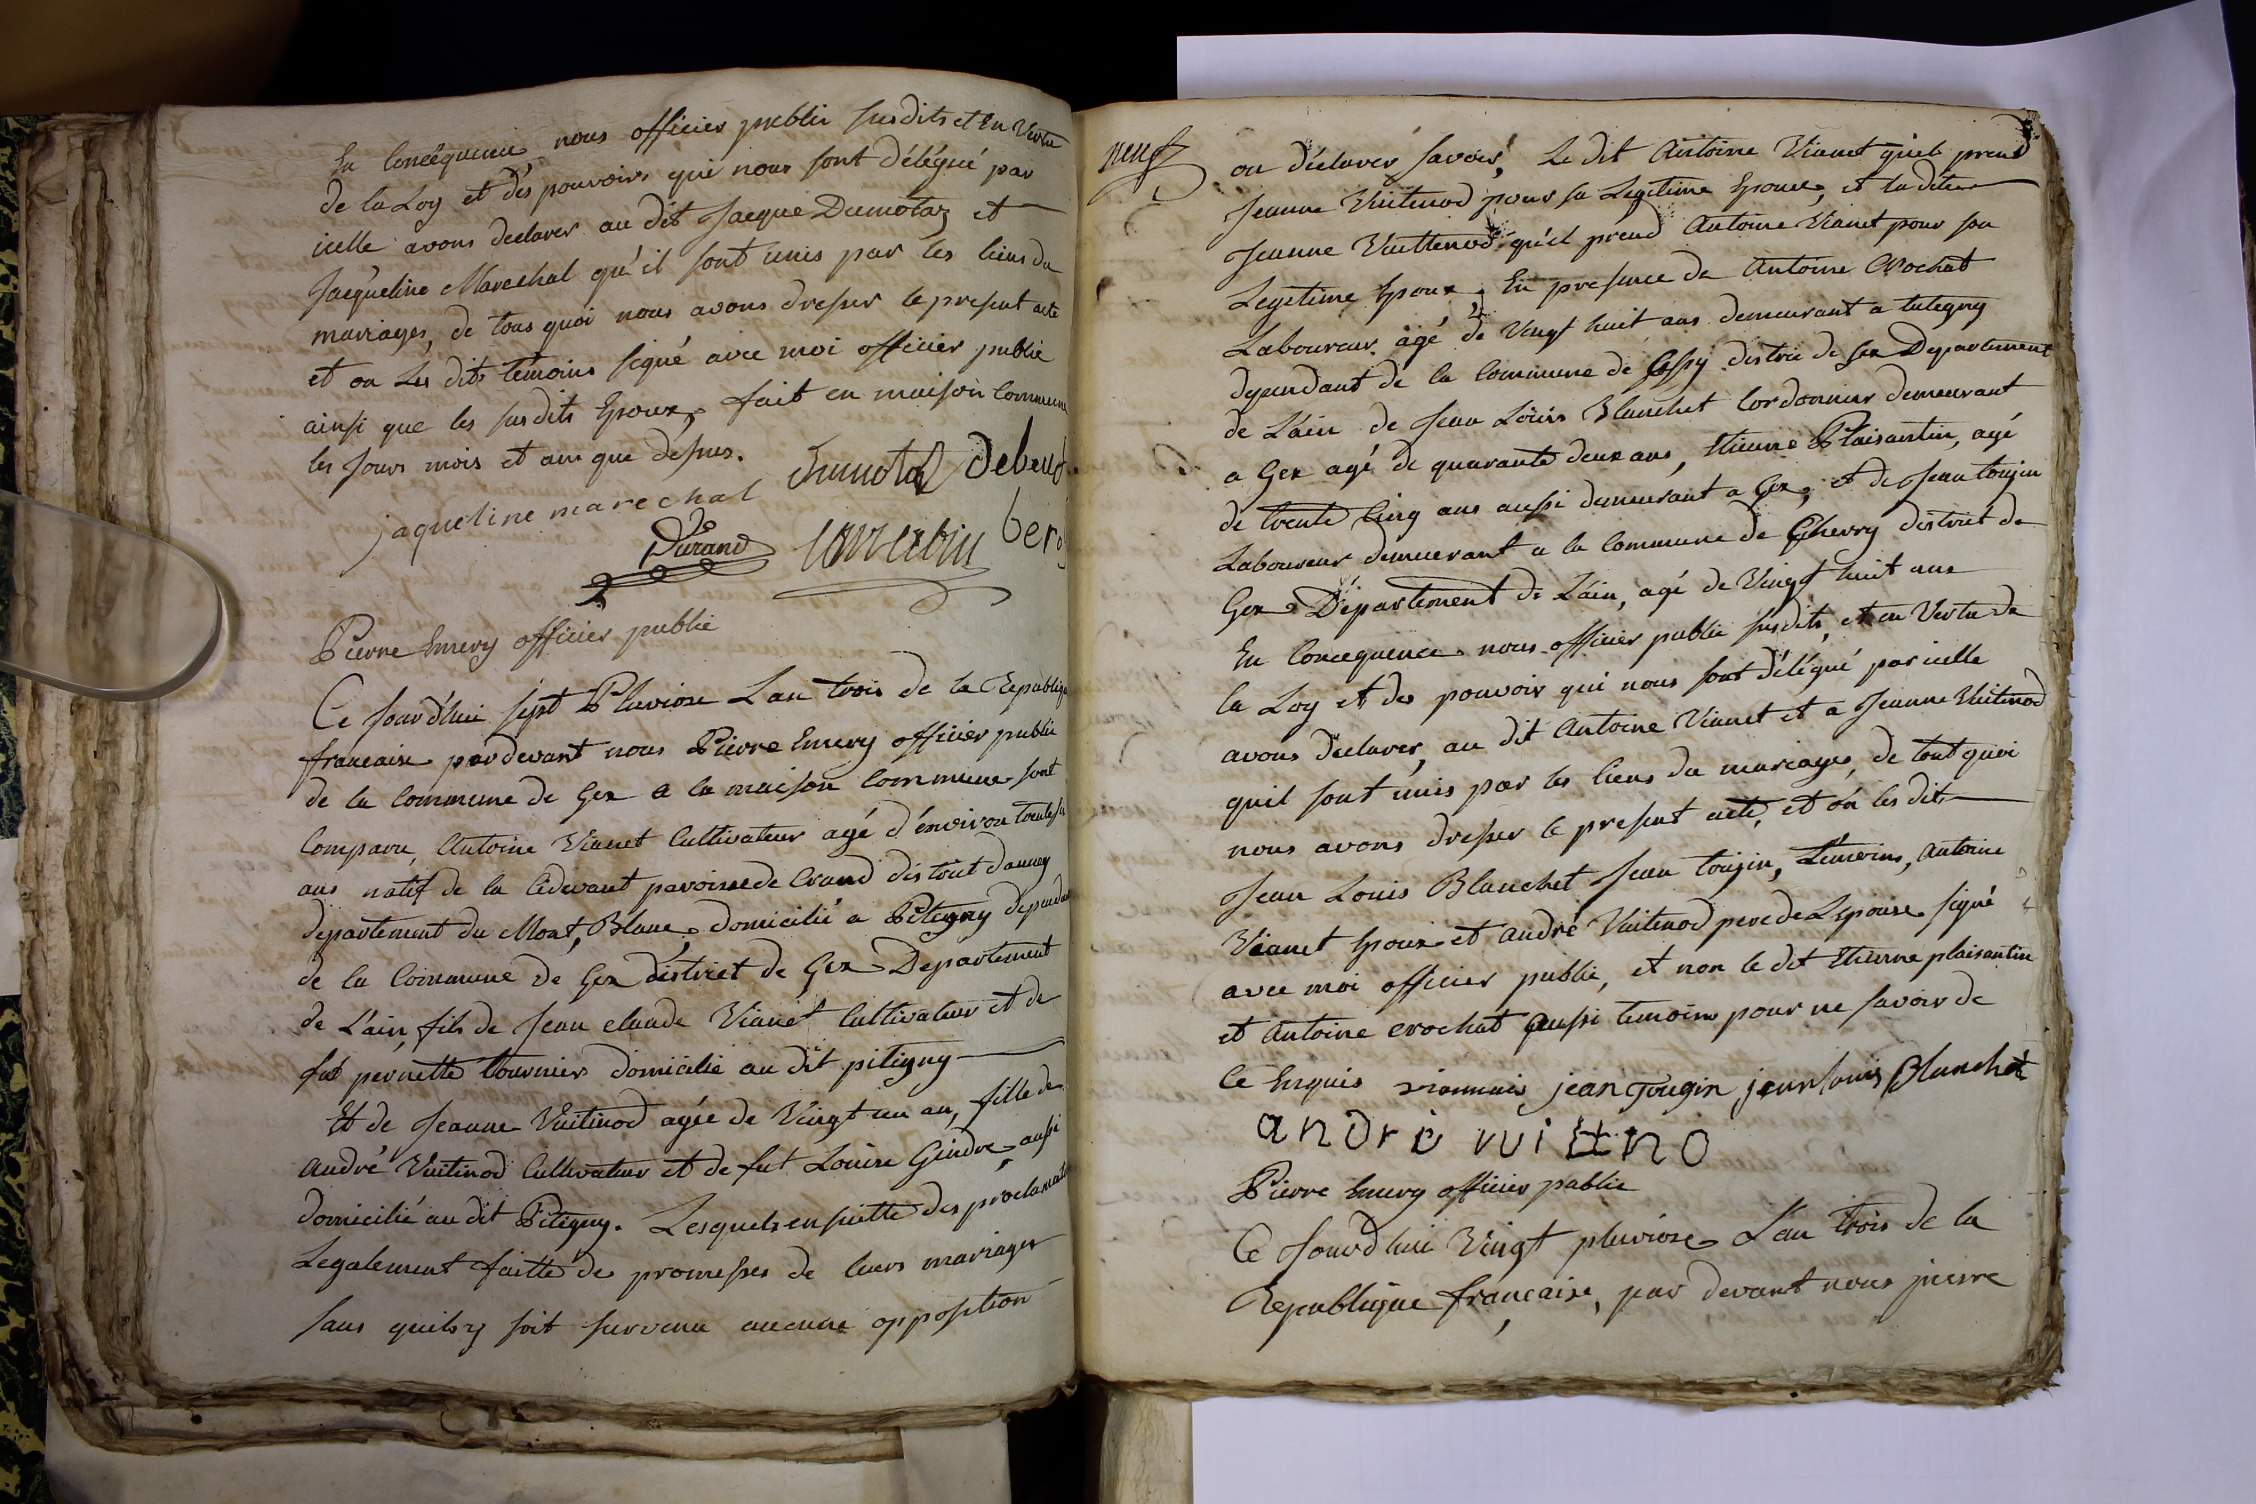 En Concequence nous officier public susdits et En Vertu
de la Loy et des pouvoirs qui nous sont délégué par
icelle avons declarer au dit Jacque Dumotaz et
Jacqueline Marechal qu'il sont unis par les liens du
mariages, de tous quoi nous avons dresser le present acte
et on les dits témoins signé avec moi officier public
ainsi que les susdits Epoux, fait en maison Commune
les Jours mois et ans que desus.
Dumotaz
jaqueline marechal
Durand
Pierre Emery officier public
Ce Jourd'hui sept Pluviose L'an trois de la Republique
francaise par devant nous Pierre Emery officier public
de la Commune de Gex a la maison Commune sont
Comparu, Antoine Vianet Cultivateur agé d'énviron trente
ans natif de la Cidevant paroisse de Crand district d'annecy
departement du Mont, Blanc, domicilié a Pitegny dependant
de la Commune de Gex district de Gex Departement
de L'ain, fils de Jean claude Vianet Cultivateur et de
fut pernette tournier domicilié au dit pitigny
Et de Jeanne Vuitinod agée de Vingt un an, fille de
André Vuitinod Cultivateur et de fut Louise Gindre, aussi
domicilié au dit Pitegny. Lesquels ensuitte des proclamation
Legalement faitte de promesses de leurs mariages
sans quils y soit survenu aucune opposition
neuf
on déclarer savoir, Le dit Antoine Vianet quil prend
Jeanne Vuitinod pour sa Legitime Epouse, et la dite
Jeanne Vuittenod qu'il prend Antoine Vianet pour son
Legitime Epoux, En presence de Antoine Crochat
Laboureur agé de Vingt huit ans demeurant a tutegny
dependant de la Commune de Cessy district de Gex Departement
de L'ain de Jean Louis Blanchet Cordonnier demeurant
a Gex agé de quarante deux ans, Etienne Plaisantin, agé
de trente Cinq ans aussi demeurant a Gex, et de Jean tougin
Laboureur demeurant a la Commune de Chevry district de
Gex Département de L'ain, agé de Vingt huit ans
En Concequence nous officier public susdits, et en Vertu de
la Loy et des pouvoir qui nous sont délégué par icelle
avons declarer, au dit Antoine Vianet et a Jeanne Vuitinod
quil sont unis par les liens du mariages, de tout quoi
nous avons dresser le present acte, et on les dits
Jean Louis Blanchet Jean tougin, Témoins, Antoine
Vianet Epoux et André Vuitinod pere de Lepouse signé
avec moi officier public, et non le dit Etienne plaisantin
et Antoine crochat aussi temoins pour ne savoir de
Ce Enquis viannais jean Tougin jean louis Blanchet
andre vuittno
Pierre Emery officier public
Ce Jourd'hui Vingt pluviose L'an trois de la
Republique française, par devant nous pierre